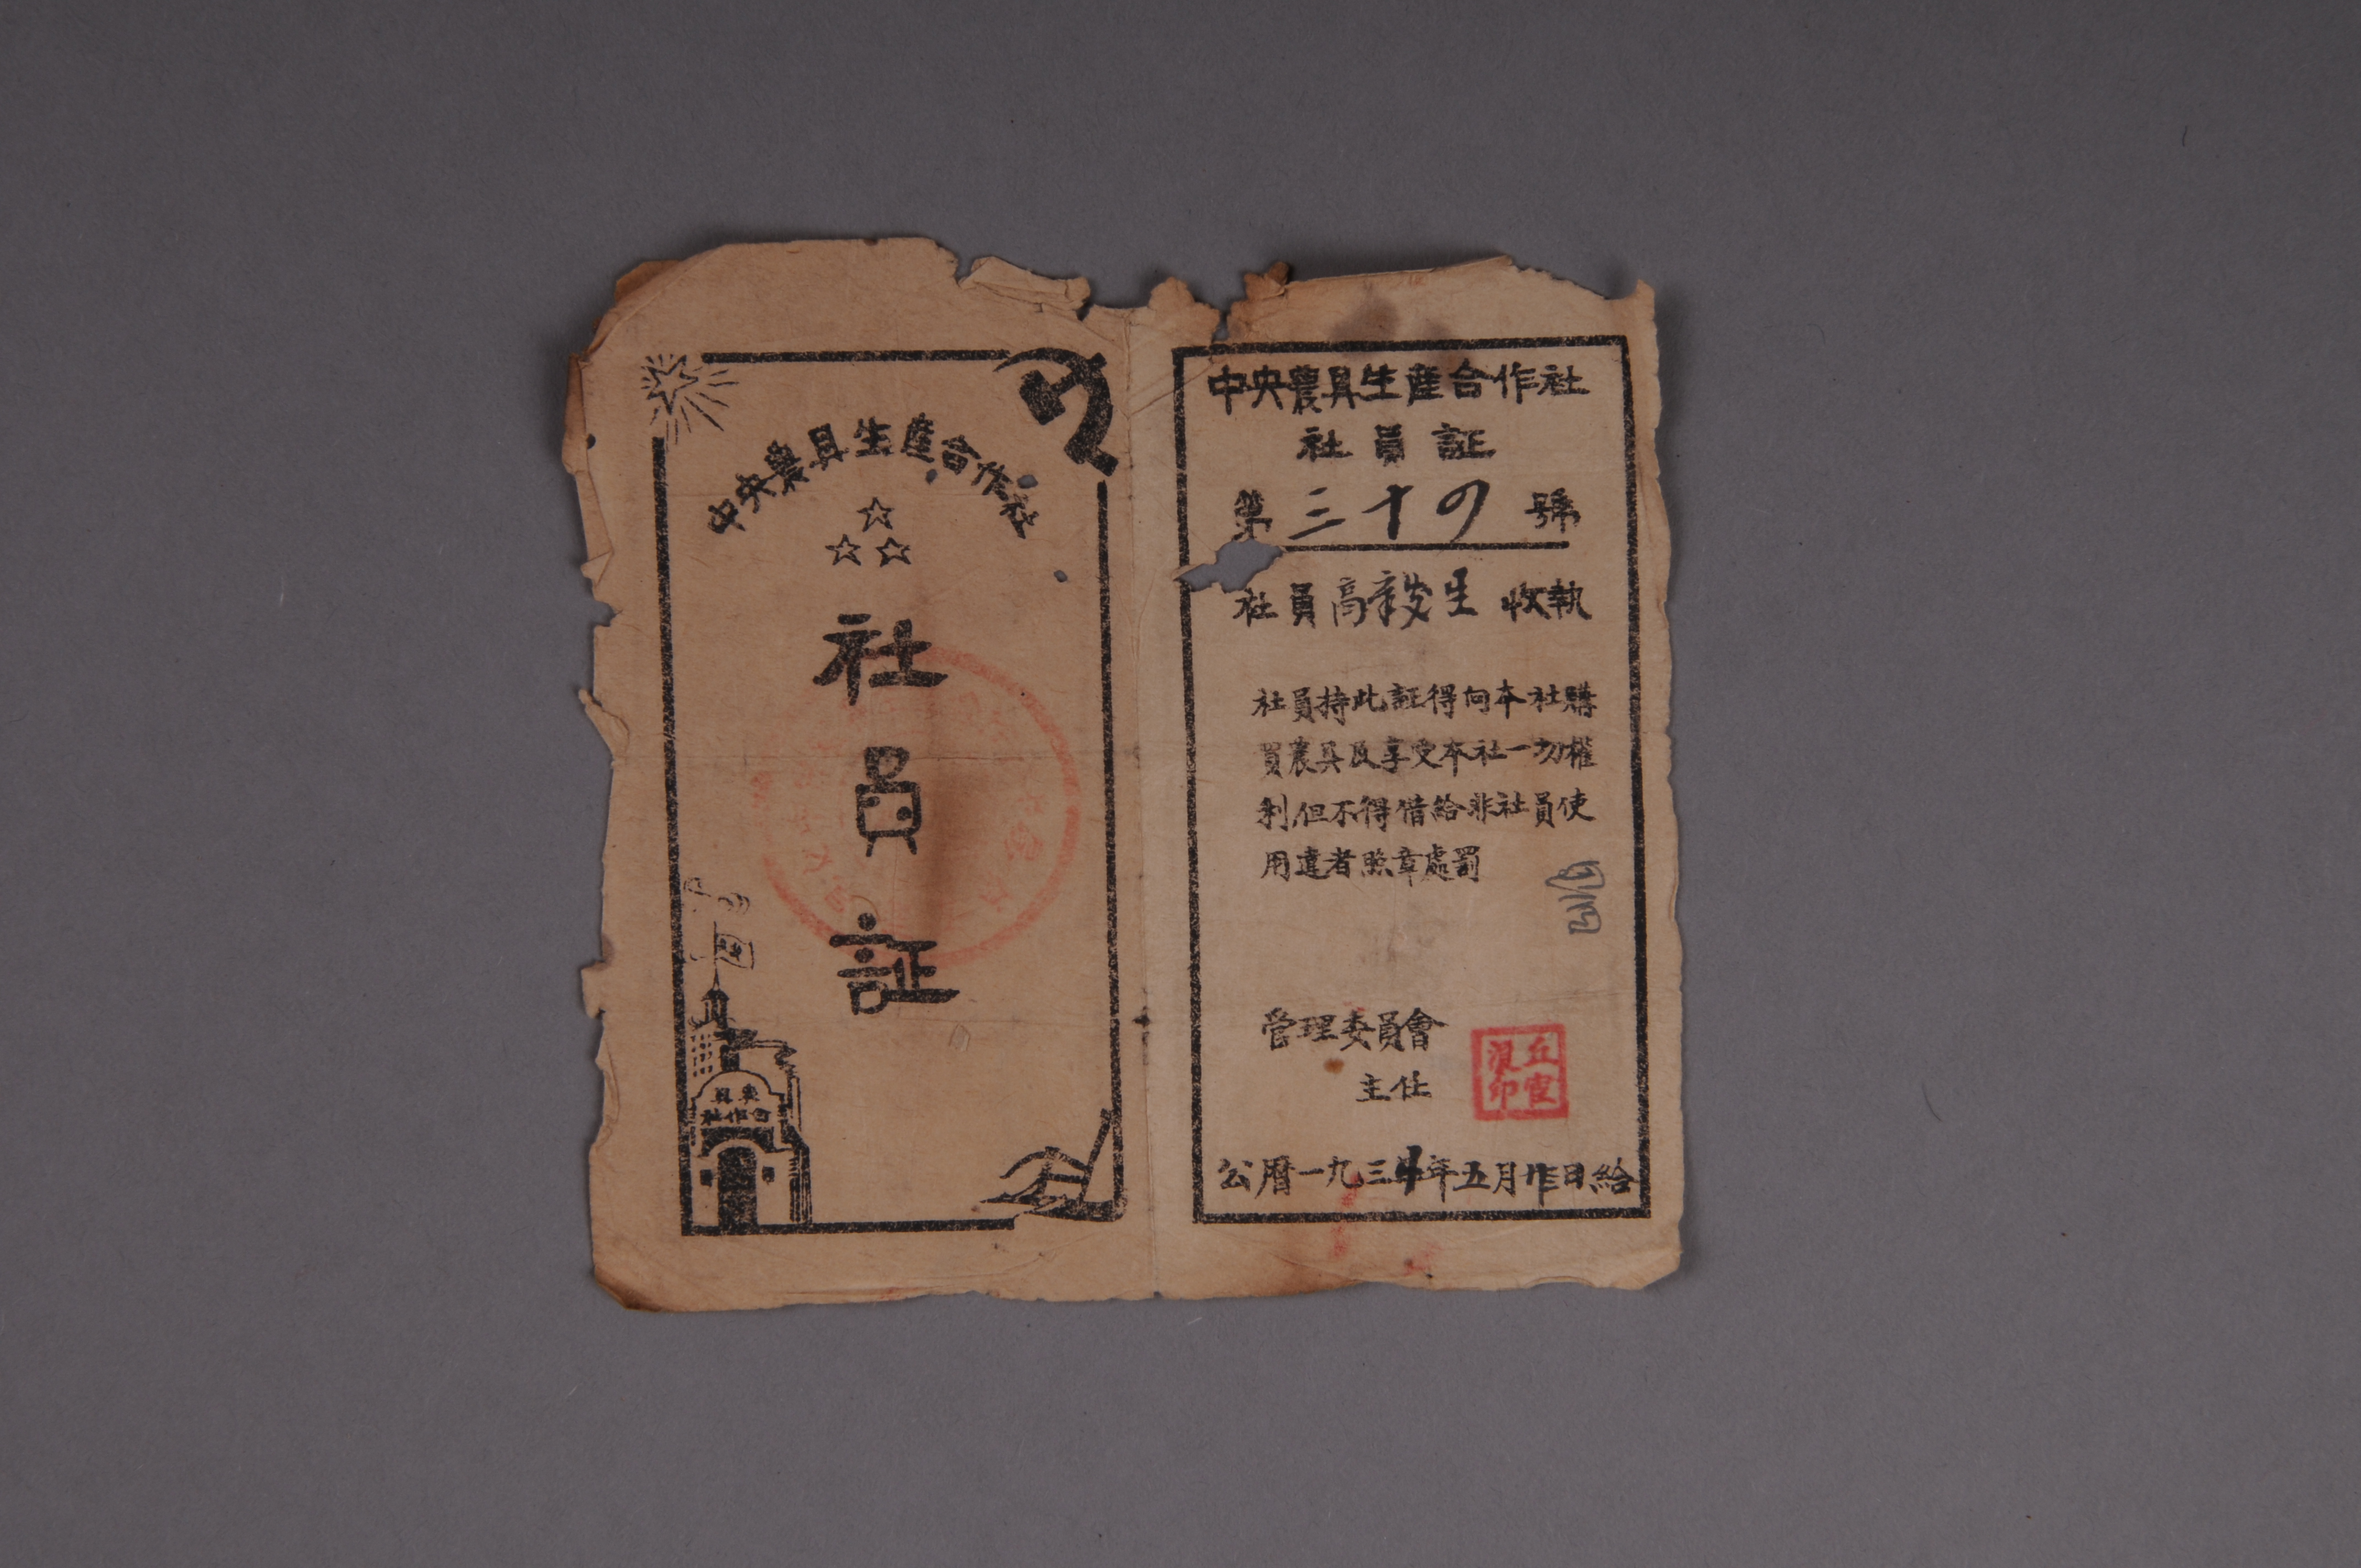 中央農具生產合作社
社
員
証
農具
合作社
中央農具生產合作社
社員証
第三十四號
社員高 生收執
社員持此証得向本社購
買農具及享受本社一切權
利但不得借給非社員使
用違者照章處罰
管理委員會
主任
公曆一九三 年五月 日給